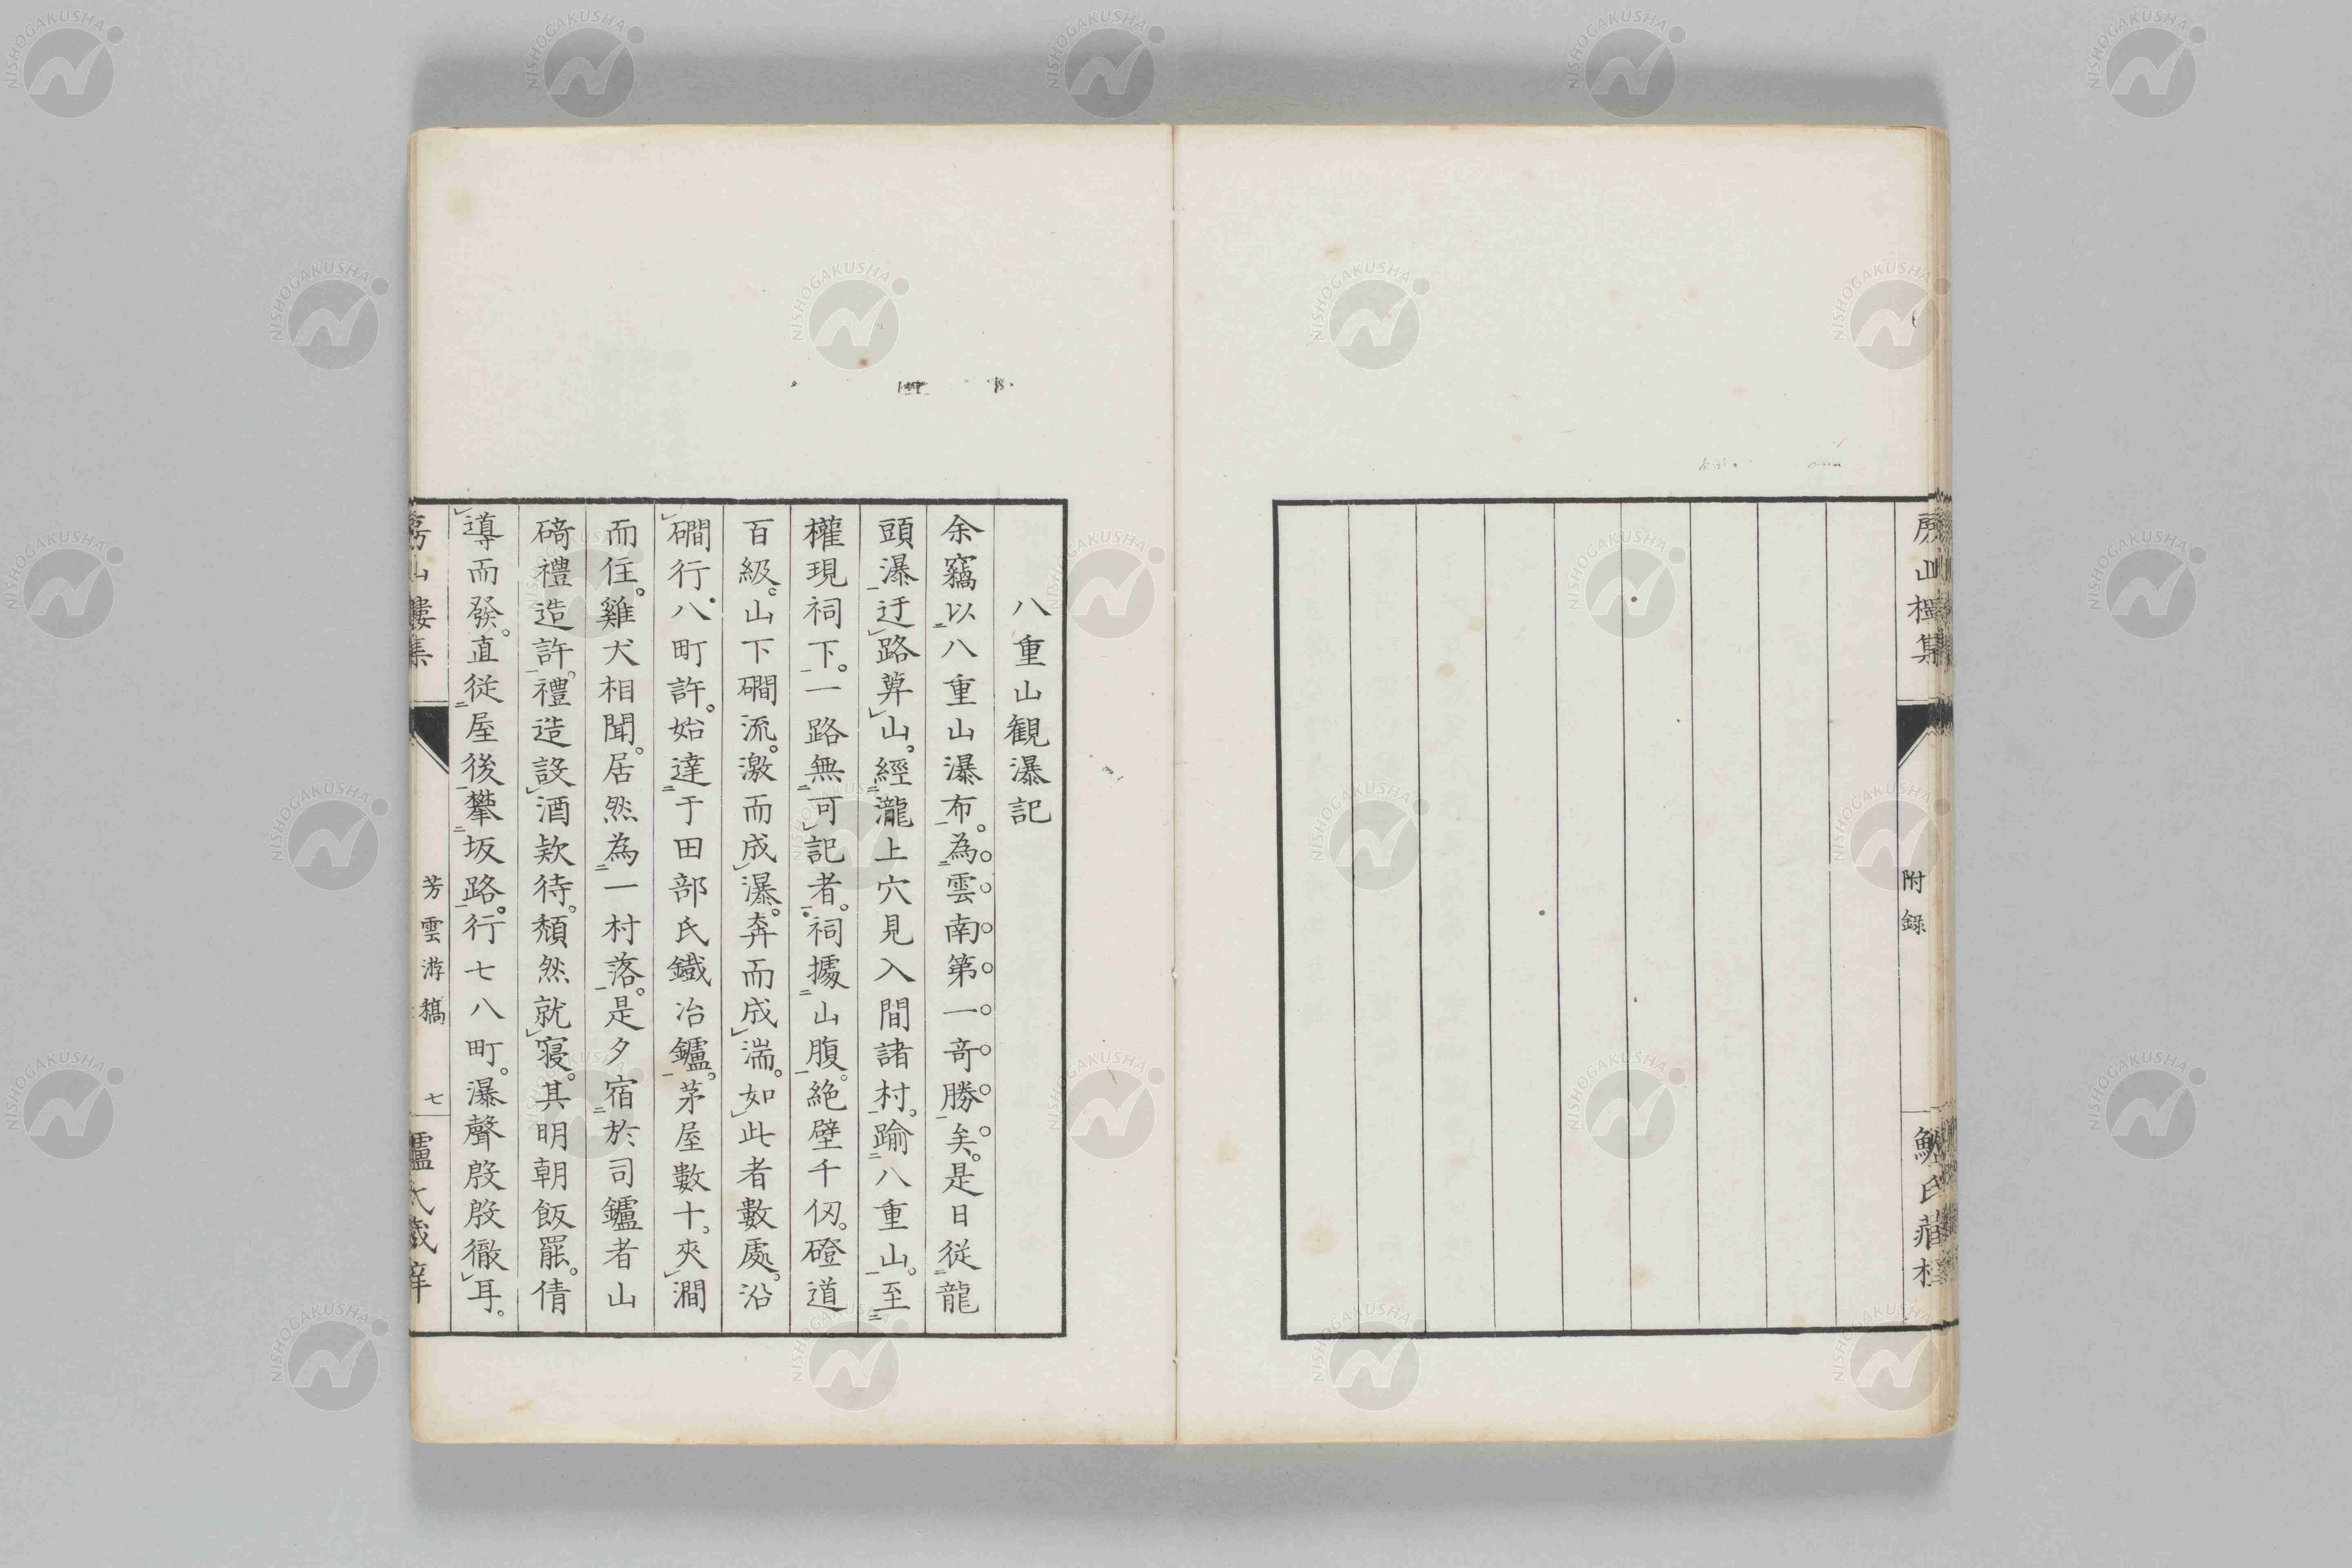 附録
八重山観瀑記
余竊以八重山瀑布。為雲南第一竒勝矣。是日従龍
頭瀑迂路筭山。經瀧上穴見入間諸村。踰八重山。至
權現祠下。一路無可記者。祠據山腹。絶壁千仭。磴道
百級。山下磵流。激而成瀑。奔而成湍。如此者數處。沿
磵行八町許。始達于田部氏鐵冶鑪。茅屋數十。夾澗
而住。雞犬相聞。居然為一村落。是夕宿於司鑪者山
碕禮造許。禮造設酒欵待。頽然就寝。其明朝飯罷。倩
導而發。直従屋後攀坂路。行七八町。瀑聲殷殷徹耳。
芳雲游稿 七
NISHOGAKUSHA